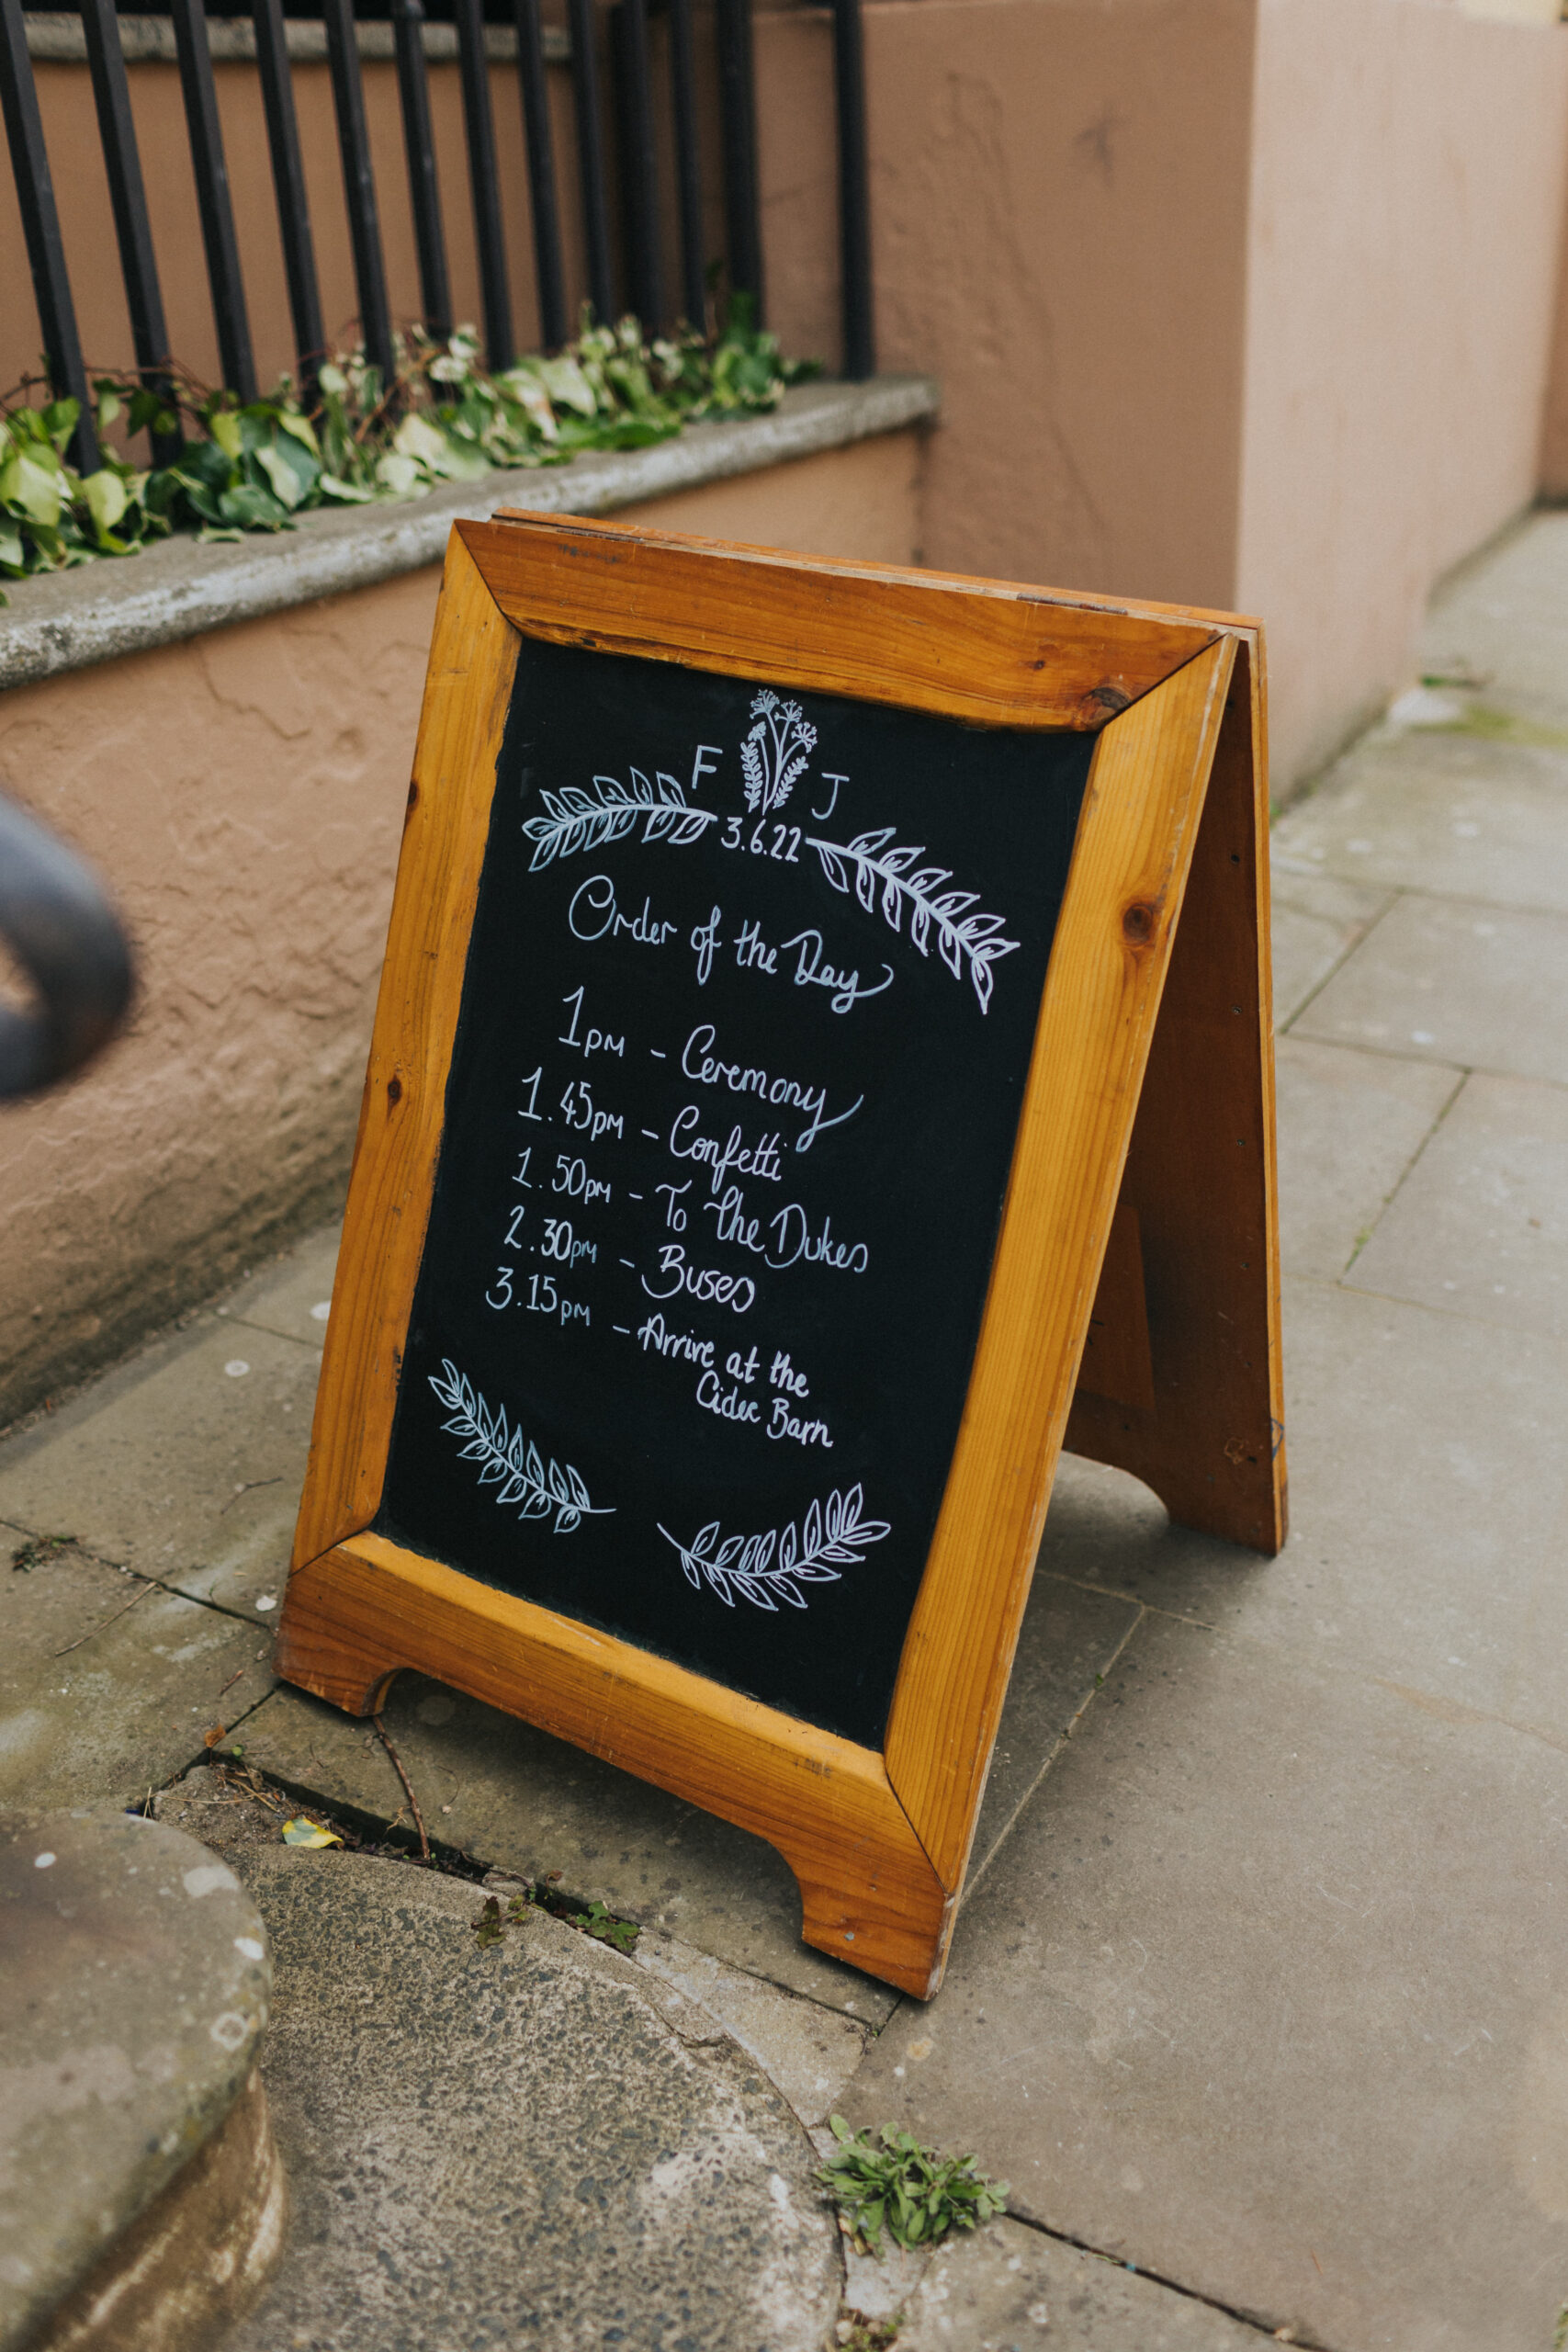 F J
3.6.22
Order of the Day
1pm - Ceremony
1.45pm - Confetti
1.50pm - To the Dukes
2.30pm - Buses
3.15pm - Arrive at the
Cider Barn